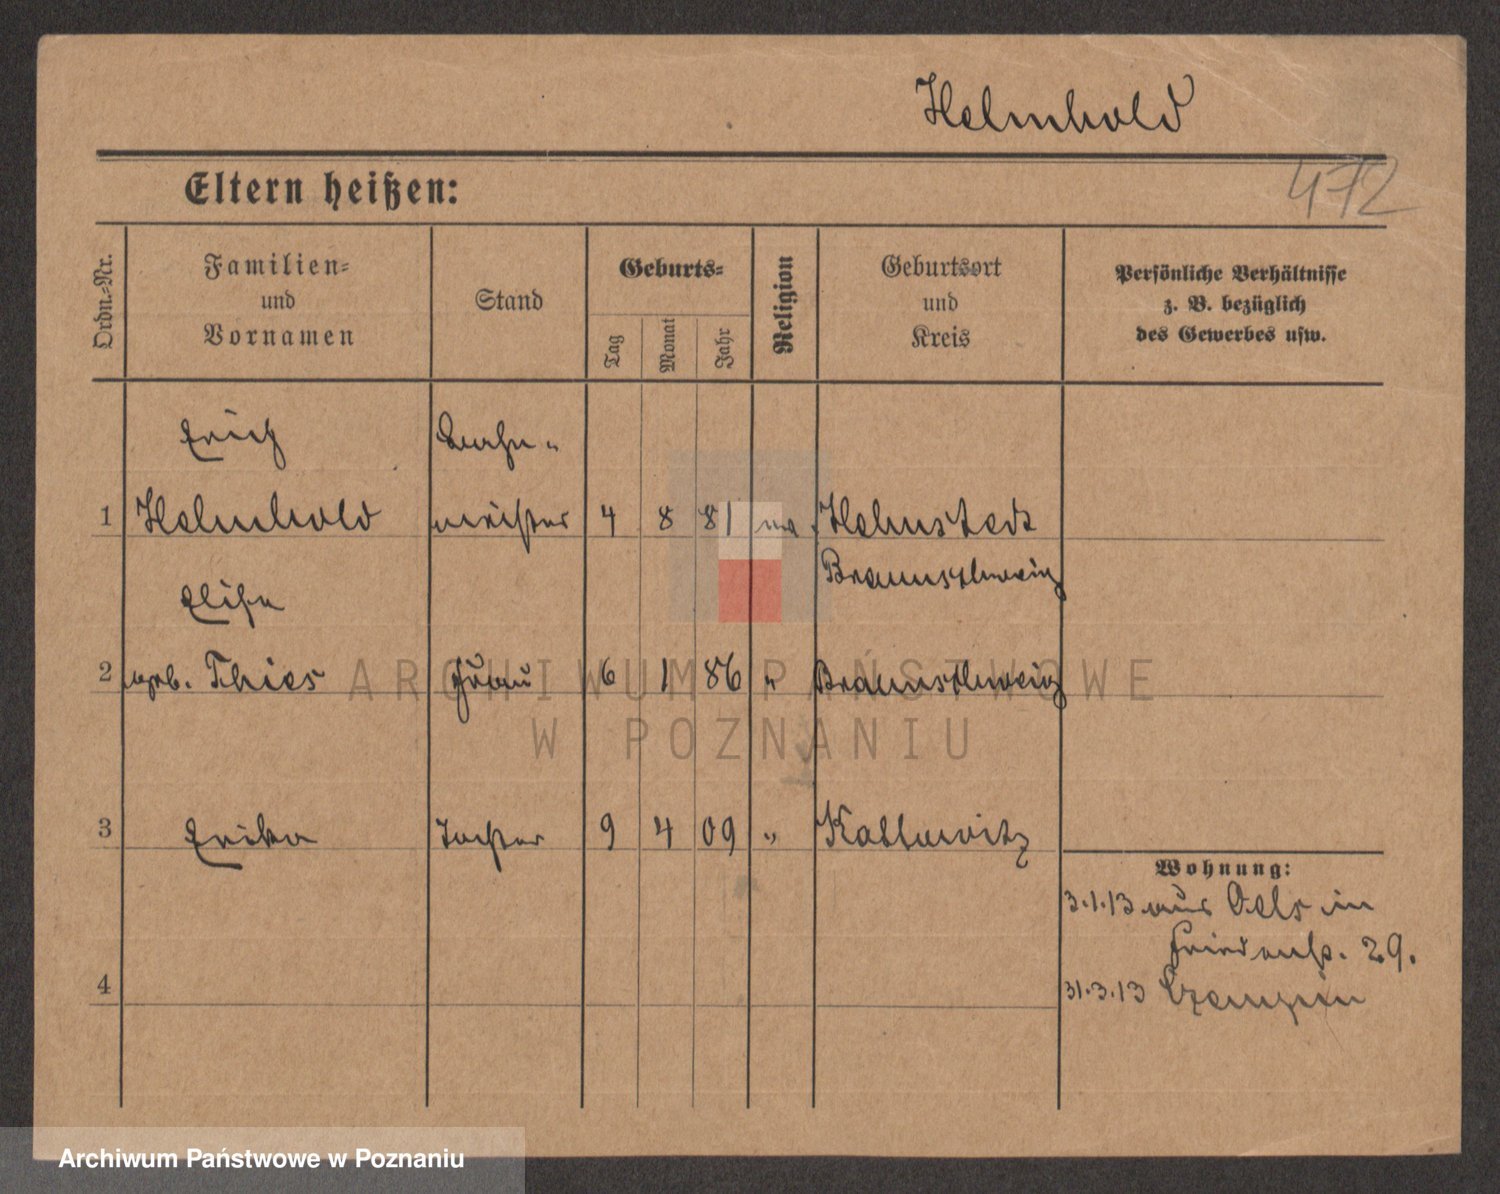 Helmhold
472
Eltern heißen:
Ordn.-Nr.
Familien-
und
Vornamen
Stand
Geburts-
Tag
Monat
Jahr
Religion
Geburtsort
und
Kreis
Persönliche Verhältnisse
z. B. bezüglich
des Gewerbes usw.
Erich
1 Helmhold meister 4 8 81 Helmstedt
Braunschweig
Elise
2 geb. Thies Frau 6 1 86 " Braunschweig
3 Erika Tochter 9 4 09 " Kattowitz
Wohnung:
3.1.13 aus Oels in
Friedenstr. 29.
4
31.3.13 Czempin
ARCHIWUM PAŃSTWOWE
W POZNANIU
Archiwum Państwowe w Poznaniu